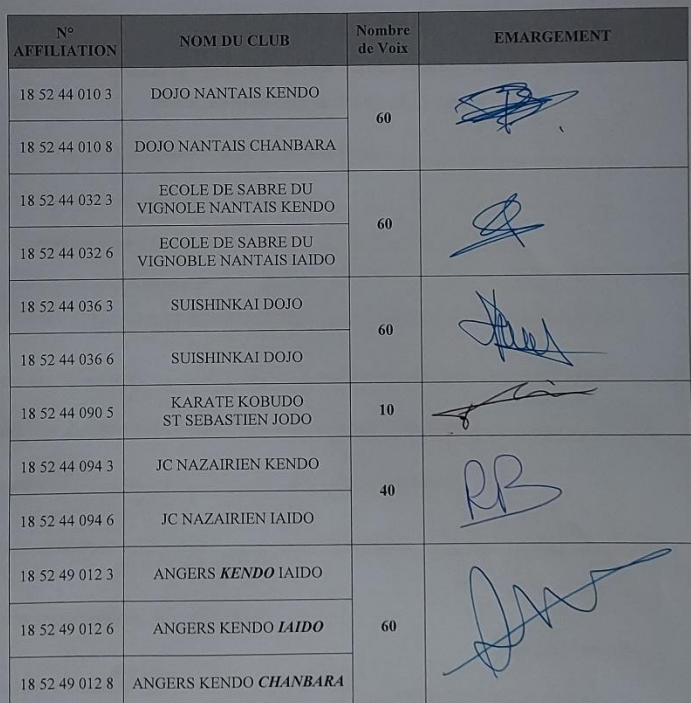 N° AFFILIATION NOM DU CLUB Nombre de Voix EMARGEMENT
18 52 44 010 3 DOJO NANTAIS KENDO
60
18 52 44 010 8 DOJO NANTAIS CHANBARA
18 52 44 032 3 ECOLE DE SABRE DU
VIGNOLE NANTAIS KENDO
60
18 52 44 032 6 ECOLE DE SABRE DU
VIGNOBLE NANTAIS IAIDO
18 52 44 036 3 SUISHINKAI DOJO
60
18 52 44 036 6 SUISHINKAI DOJO
18 52 44 090 5 KARATE KOBUDO
ST SEBASTIEN JODO
10
18 52 44 094 3 JC NAZAIRIEN KENDO
40
RB
18 52 44 094 6 JC NAZAIRIEN IAIDO
18 52 49 012 3 ANGERS KENDO IAIDO
18 52 49 012 6 ANGERS KENDO IAIDO 60
18 52 49 012 8 ANGERS KENDO CHANBARA